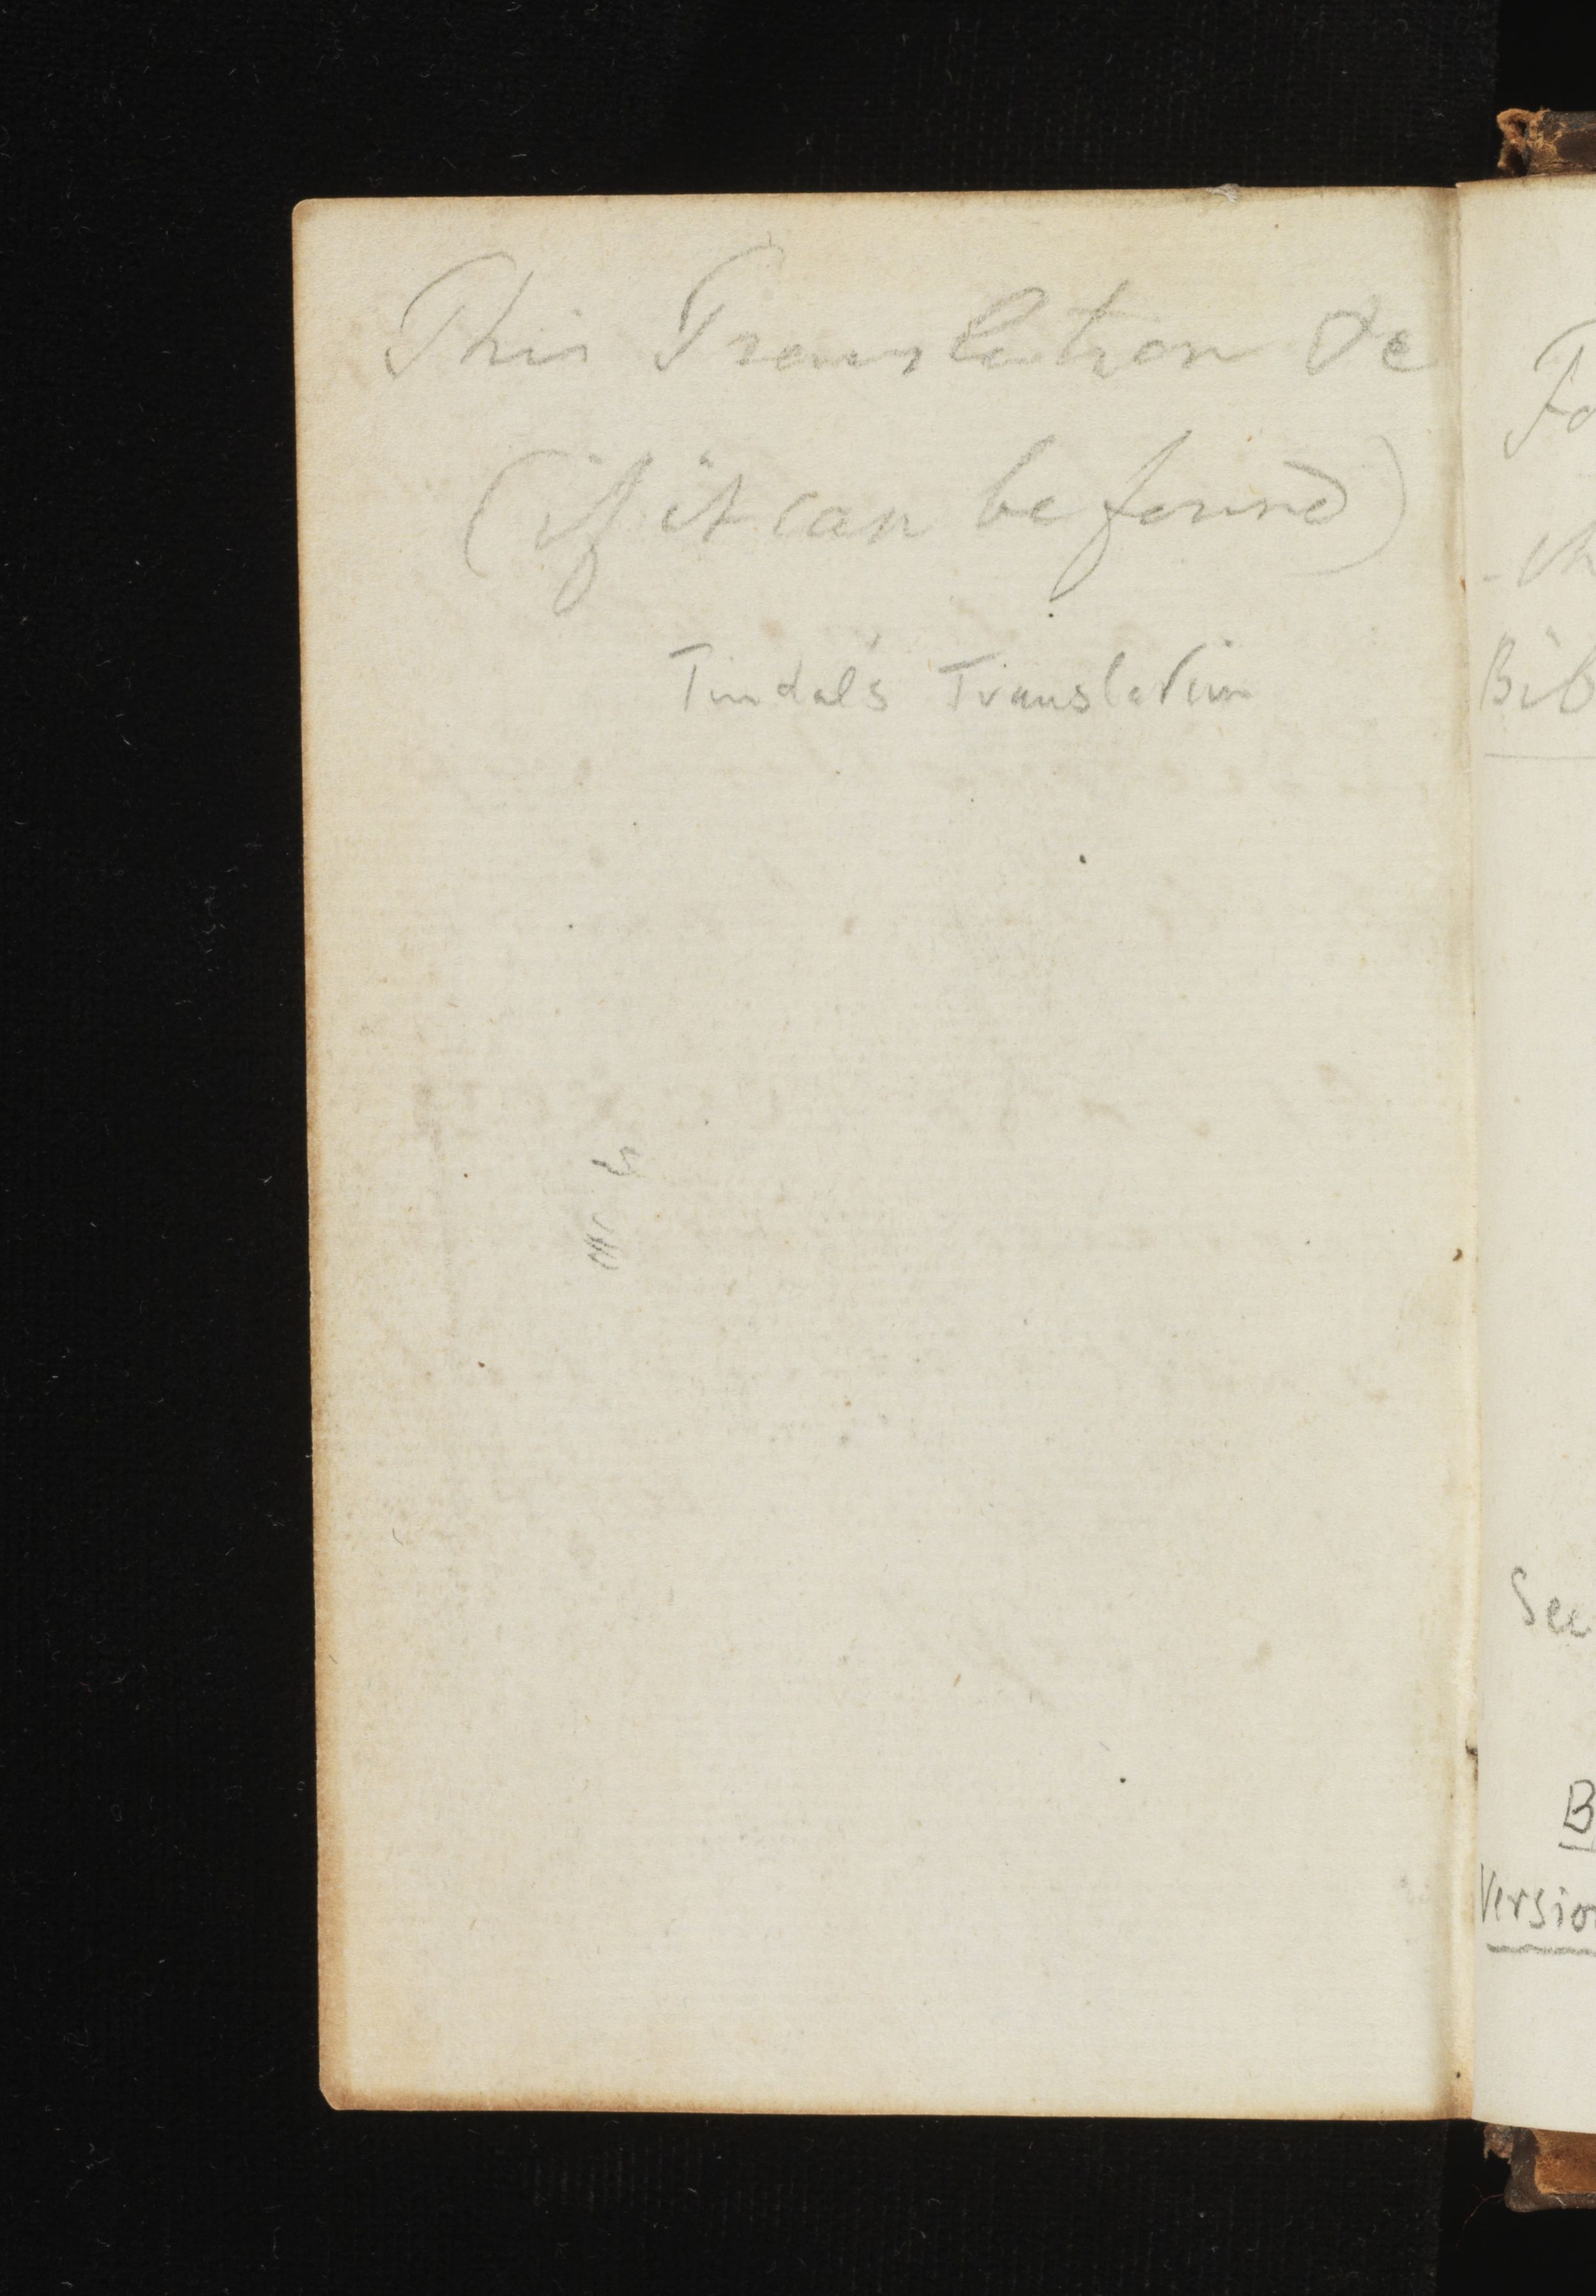 This Translation &c
(if it can be found)
Tindal's Translation
Bib
See
B
Version